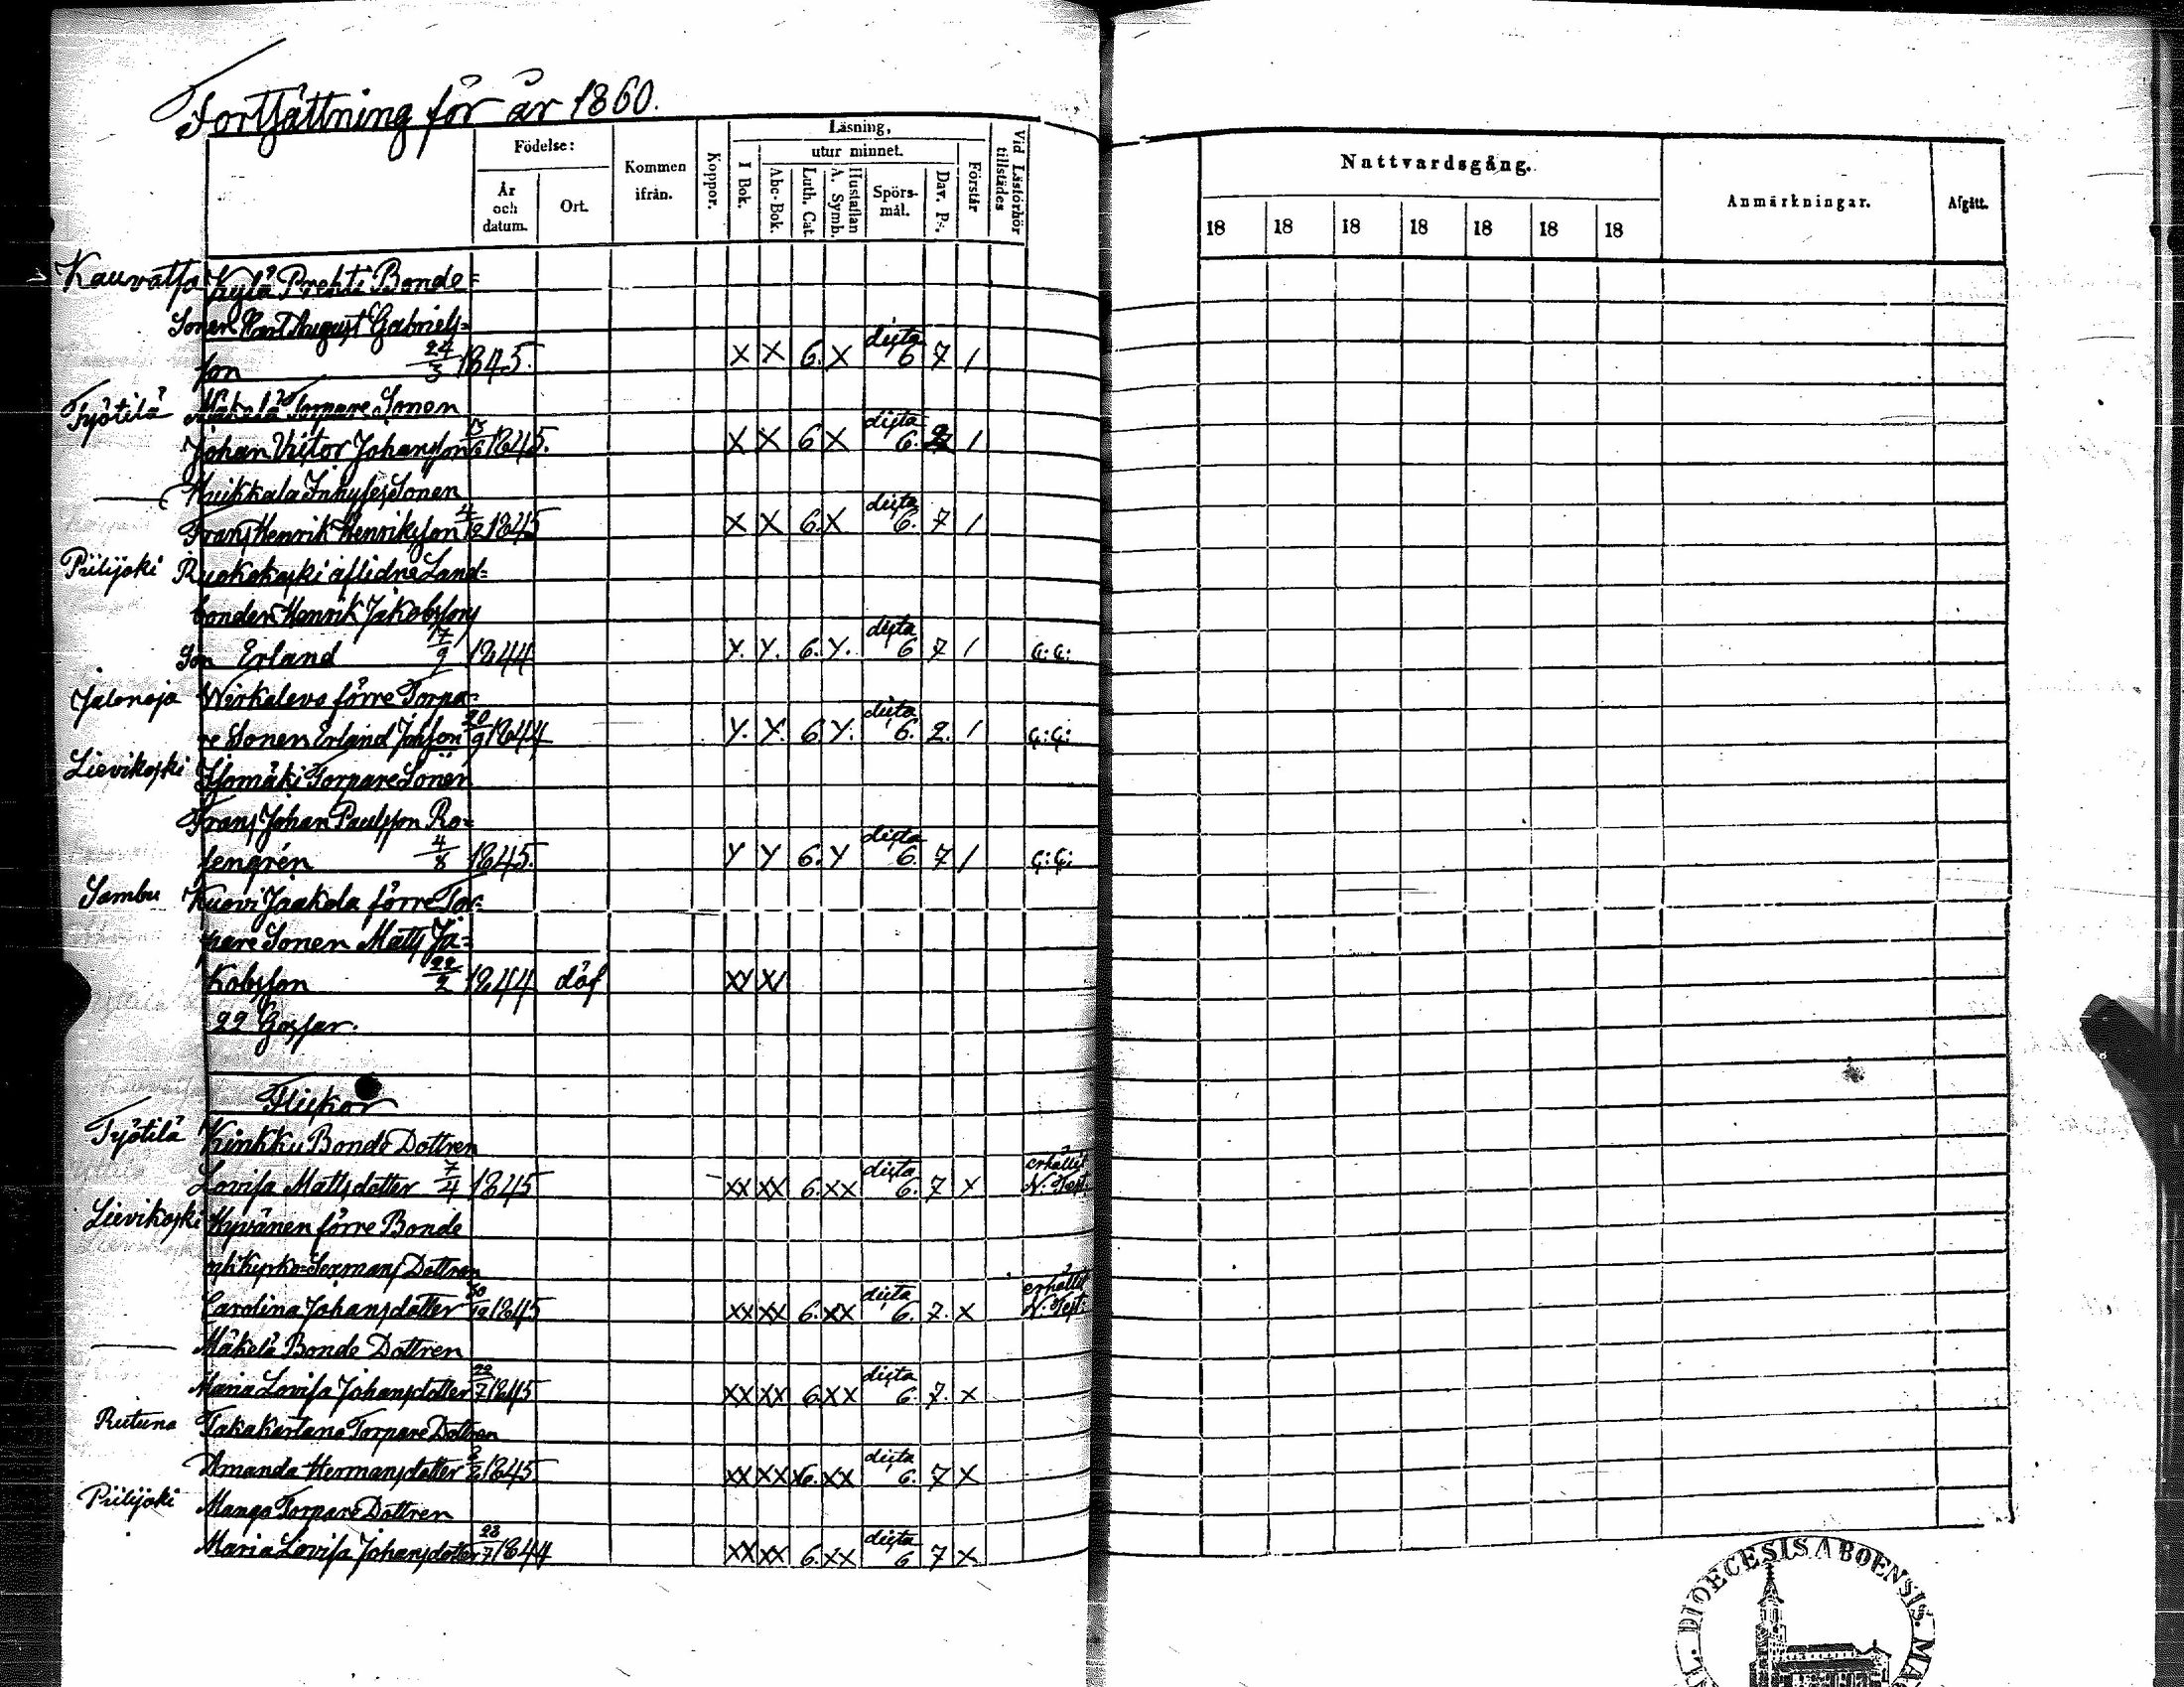 Fortsättning för år 1860.
Födelse: Kommen ifrån. Koppor. Läsning, Vid Läsförhör tillstädes
År och datum. Ort. I Bok. utur minnet. Förstår
Abc-Bok. Luth. Cat. A. Symb. Hustaflan Spörsmål. Dav. Ps.
Nattvardsgång. Anmärkningar. Afgått.
18 18 18 18 18 18 18
Kauvatsa Kylä Prehti Bonde=
Sonen Karl August Gabriels=
son 24/3 1845. X X 6. X dixta 6 7 /
Työtilä Mäkelä Torpare Sonen
Johan Victor Johansson 1845. X X 6 X dixta 6. /
— Huikkala Inhyses Sonen
Frans Henrik Henriksson 4/12 1845 X X 6. X dixta 6. 7 /
Piilijoki Ruokokoski aflidne Land=
bonden Henrik Jakobssons
Son Erland 17/9 1844 Y. Y. 6. Y. dixta 6 7 / G: G:
Jalonoja Wirkalevo förre Torpa=
re Sonen Erland Johsson 20/9 1844 Y. Y. 6 Y. dixta 6. 2. / G: G:
Lievikoski Isomäki Torpare Sonen
Frans Johan Paulsson Ro=
sengrén 4/8 1845. Y Y 6. Y dixta 6. 7 / G: G:
Sambu Kuovi Jaakola förre Tor=
pare Sonen Matts Ja=
kobsson 22/2 1844 döf XX XX
22 Gossar.
Flickor
Työtilä Kinkku Bonde Dottren
Lovisa Mattsdotter 7/4 1845 XX XX 6. XX dixta 6. 7 X erhållit N. Test.
Lievikoski Hyvänen förre Bonde
och Kyrko-Sexmans Dottren
Carolina Johansdotter 30/12 1845 XX XX 6. XX dixta 6. 7. X erhållit N. Test:
— Mäkelä Bonde Dottren
Maria Lovisa Johansdotter 22/7 1845 XX XX 6. XX dixta 6. 7. X
Rutuna Takakartano Torpare Dottren
Amanda Hermansdotter 1845 XX XX 6. XX dixta 6. 7 X
Piilijoki Manga Torpare Dottren
Maria Lovisa Johansdotter 28/7 1844 XX XX 6. XX dixta 6 7 X
DIOECESIS ABOENSIS.